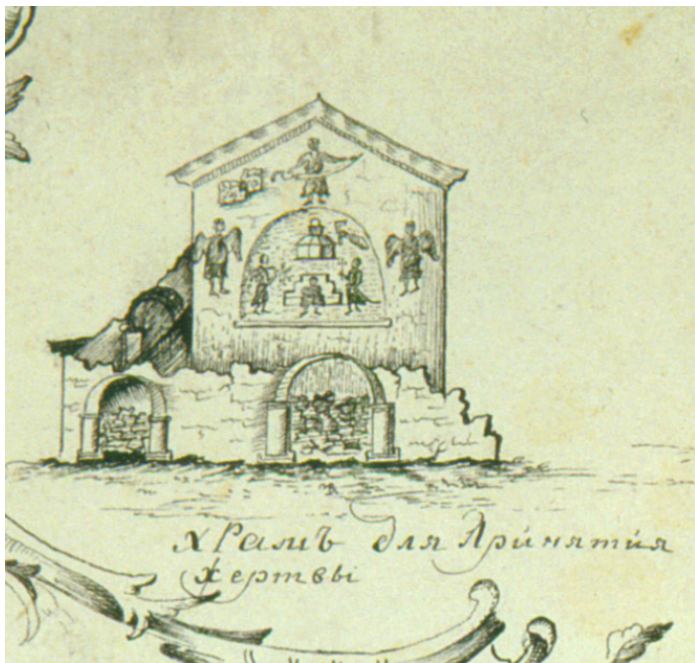 храмъ для Принятия
жертвы